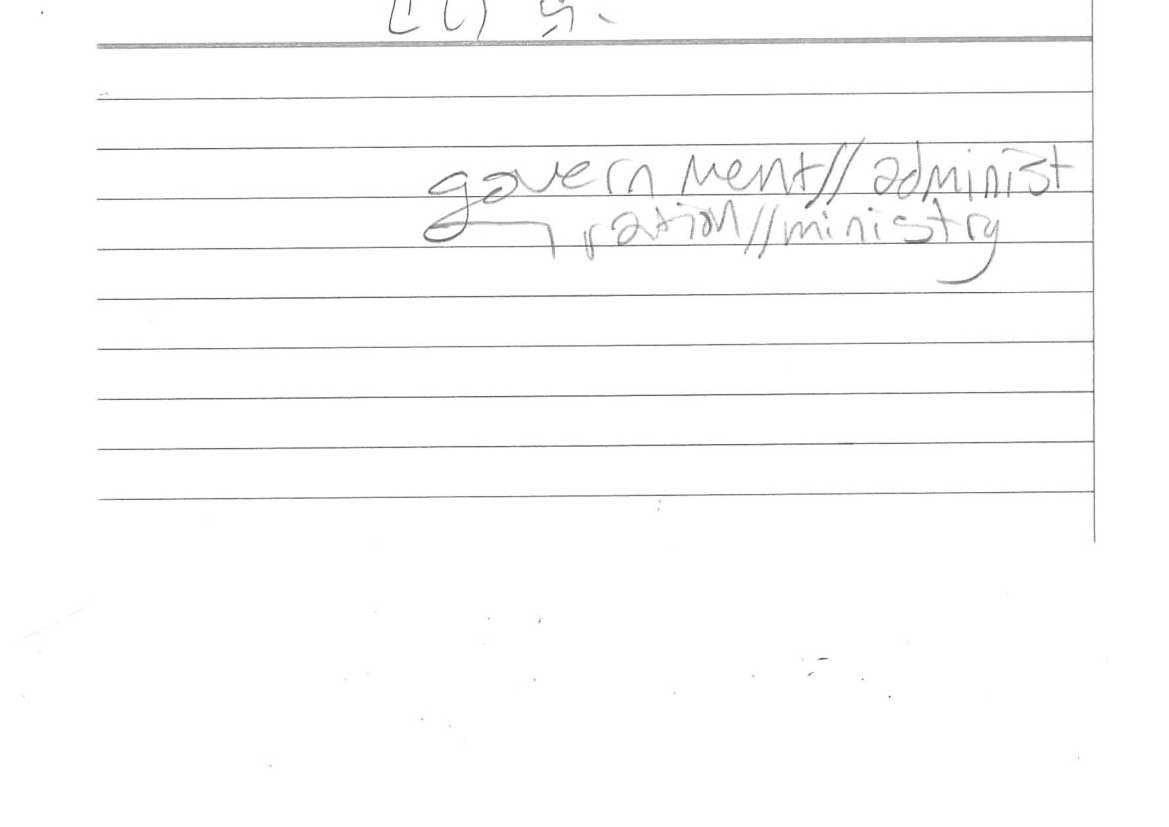 government//administ
ration//ministry